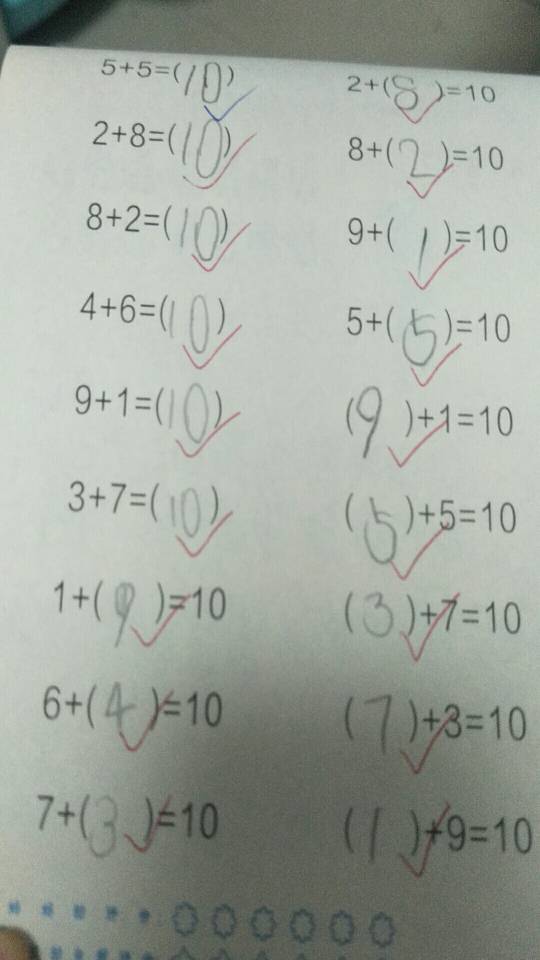 5+5=(10)
2+8=(10)
8+2=(10)
4+6=(10)
9+1=(10)
3+7=(10)
1+(9)=10
6+(4)=10
7+(3)=10
2+(8)=10
8+(2)=10
9+(1)=10
5+(5)=10
(9)+1=10
(5)+5=10
(3)+7=10
(7)+3=10
(1)+9=10